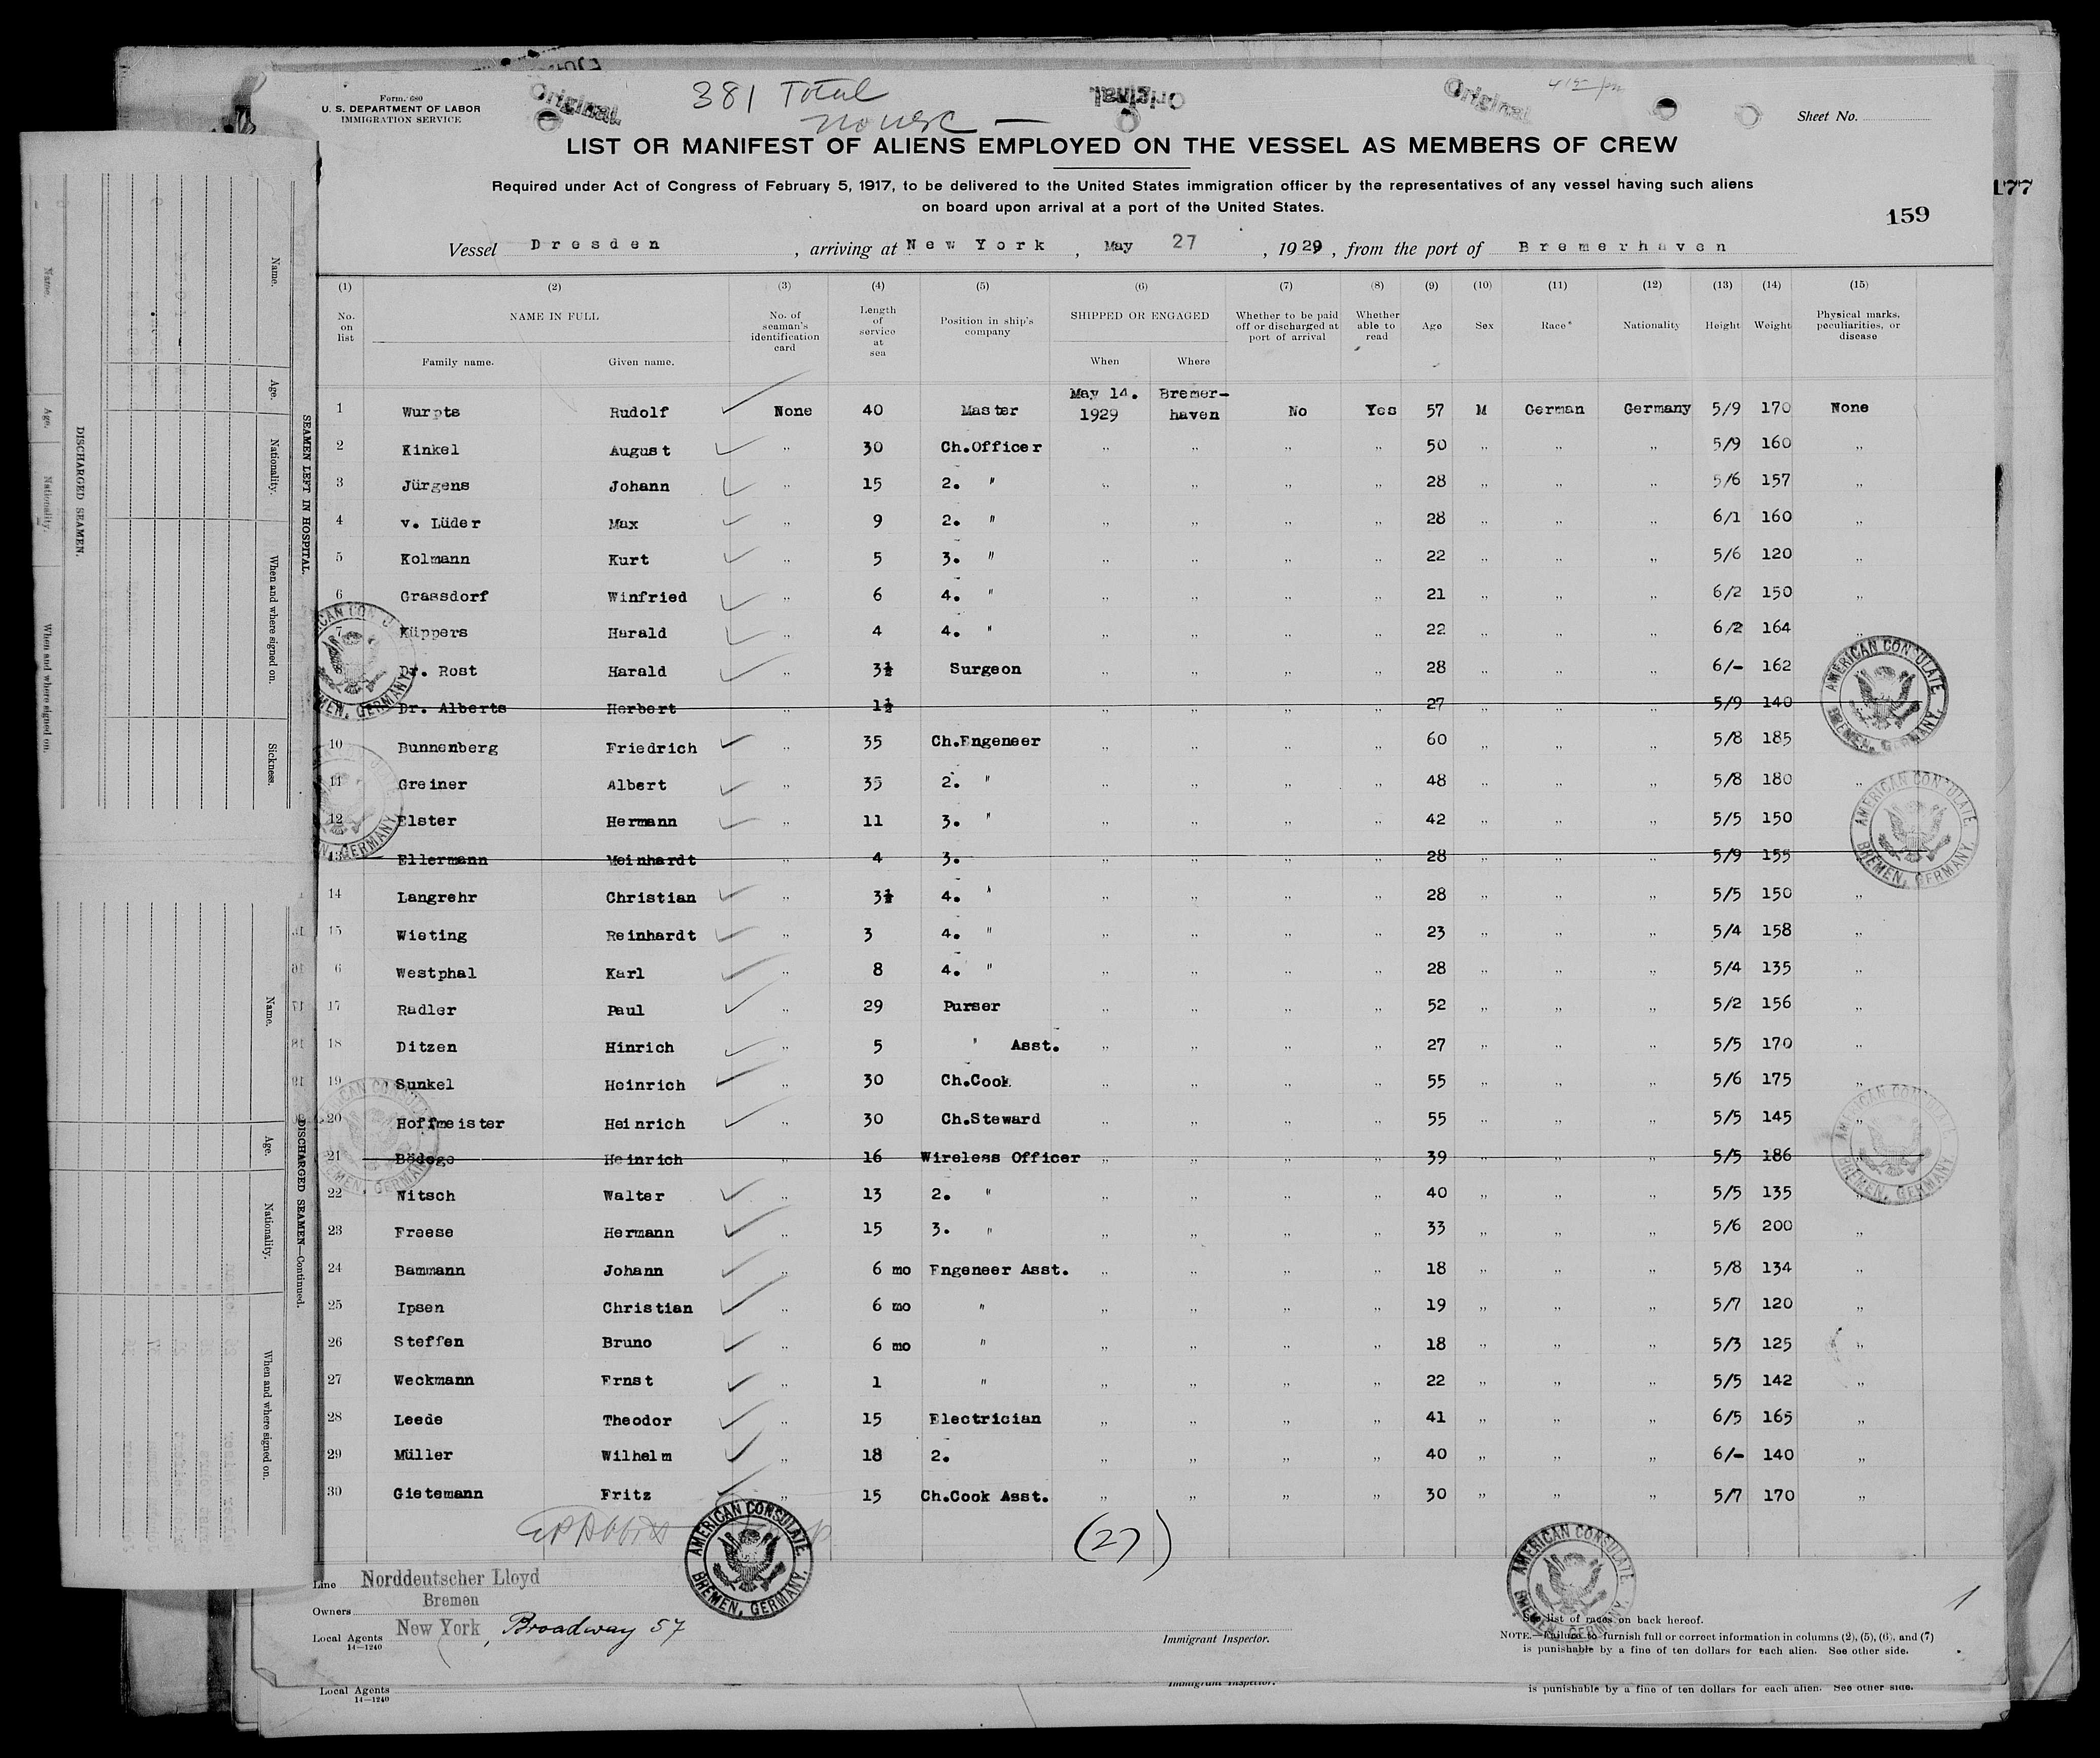 Form 680
U. S. DEPARTMENT OF LABOR
IMMIGRATION SERVICE
Original
381 Total
Original
Original
Sheet No.
LIST OR MANIFEST OF ALIENS EMPLOYED ON THE VESSEL AS MEMBERS OF CREW
Required under Act of Congress of February 5, 1917, to be delivered to the United States immigration officer by the representatives of any vessel having such aliens
on board upon arrival at a port of the United States.
177
159
Vessel Dresden, arriving at New York, May 27, 1929, from the port of Bremerhaven
(1) (2) (3) (4) (5) (6) (7) (8) (9) (10) (11) (12) (13) (14) (15)
No. on list NAME IN FULL Family name. Given name. No. of seaman's identification card Length of service at sea Position in ship's company SHIPPED OR ENGAGED When Where Whether to be paid off or discharged at port of arrival Whether able to read Age Sex Race* Nationality Height Weight Physical marks, peculiarities, or disease
1 Wurpts Rudolf None 40 Master May 14. 1929 Bremer-haven No Yes 57 M German Germany 5/9 170 None
2 Kinkel August " 30 Ch.Officer " " " " 50 " " " 5/9 160 "
3 Jürgens Johann " 15 2. " " " " " 28 " " " 5/6 157 "
4 v. Lüder Max " 9 2. " " " " " 28 " " " 6/1 160 "
5 Kolmann Kurt " 5 3. " " " " " 22 " " " 5/6 120 "
6 Grassdorf Winfried " 6 4. " " " " " 21 " " " 6/2 150 "
7 Küppers Harald " 4 4. " " " " " 22 " " " 6/2 164 "
Dr. Rost Harald " 3½ Surgeon " " " " 28 " " " 6/- 162
Dr. Alberts Herbert " 1½ " " " " 27 " " " 5/9 140
10 Bunnenberg Friedrich " 35 Ch.Engeneer " " " " 60 " " " 5/8 185
11 Greiner Albert " 35 2. " " " " " 48 " " " 5/8 180 "
12 Elster Hermann " 11 3. " " " " " 42 " " " 5/5 150
13 Ellermann Meinhardt " 4 3. " " " " 28 " " " 5/9 155
14 Langrehr Christian " 3½ 4. " " " " " 28 " " " 5/5 150 "
15 Wieting Reinhardt " 3 4. " " " " " 23 " " " 5/4 158 "
6 Westphal Karl " 8 4. " " " " " 28 " " " 5/4 135 "
17 Radler Paul " 29 Purser " " " " 52 " " " 5/2 156 "
18 Ditzen Hinrich " 5 " Asst. " " " " 27 " " " 5/5 170 "
19 Sunkel Heinrich " 30 Ch.Cook " " " " 55 " " " 5/6 175 "
20 Hoffmeister Heinrich " 30 Ch.Steward " " " " 55 " " " 5/5 145 "
21 Bödege Heinrich " 16 Wireless Officer " " " " 39 " " " 5/5 186 "
22 Nitsch Walter " 13 2. " " " " " 40 " " " 5/5 135 "
23 Freese Hermann " 15 3. " " " " " 33 " " " 5/6 200 "
24 Bammann Johann " 6 mo Engeneer Asst. " " " " 18 " " " 5/8 134 "
25 Ipsen Christian " 6 mo " " " " " 19 " " " 5/7 120 "
26 Steffen Bruno " 6 mo " " " " " 18 " " " 5/3 125 "
27 Weckmann Ernst " 1 " " " " " 22 " " " 5/5 142 "
28 Leede Theodor " 15 Electrician " " " " 41 " " " 6/5 165 "
29 Müller Wilhelm " 18 2. " " " " 40 " " " 6/- 140 "
30 Gietemann Fritz " 15 Ch.Cook Asst. " " " " 30 " " " 5/7 170 "
(27)
AMERICAN CONSULATE. BREMEN, GERMANY.
AMERICAN CONSULATE. BREMEN, GERMANY.
AMERICAN CONSULATE. BREMEN, GERMANY.
AMERICAN CONSULATE. BREMEN, GERMANY.
AMERICAN CONSULATE. BREMEN, GERMANY.
Line Norddeutscher Lloyd
Owners Bremen
Local Agents New York, Broadway 57
14—1240
Immigrant Inspector.
1
See list of races on back hereof.
NOTE.—Failure to furnish full or correct information in columns (2), (5), (6), and (7)
is punishable by a fine of ten dollars for each alien. See other side.
Local Agents
14—1240
Immigrant Inspector.
is punishable by a fine of ten dollars for each alien. See other side.
SEAMEN LEFT IN HOSPITAL.
Name. Age. Nationality. When and where signed on. Sickness.
DISCHARGED SEAMEN.
Name. Age. Nationality. When and where signed on.
DISCHARGED SEAMEN—Continued.
Name. Age. Nationality. When and where signed on.